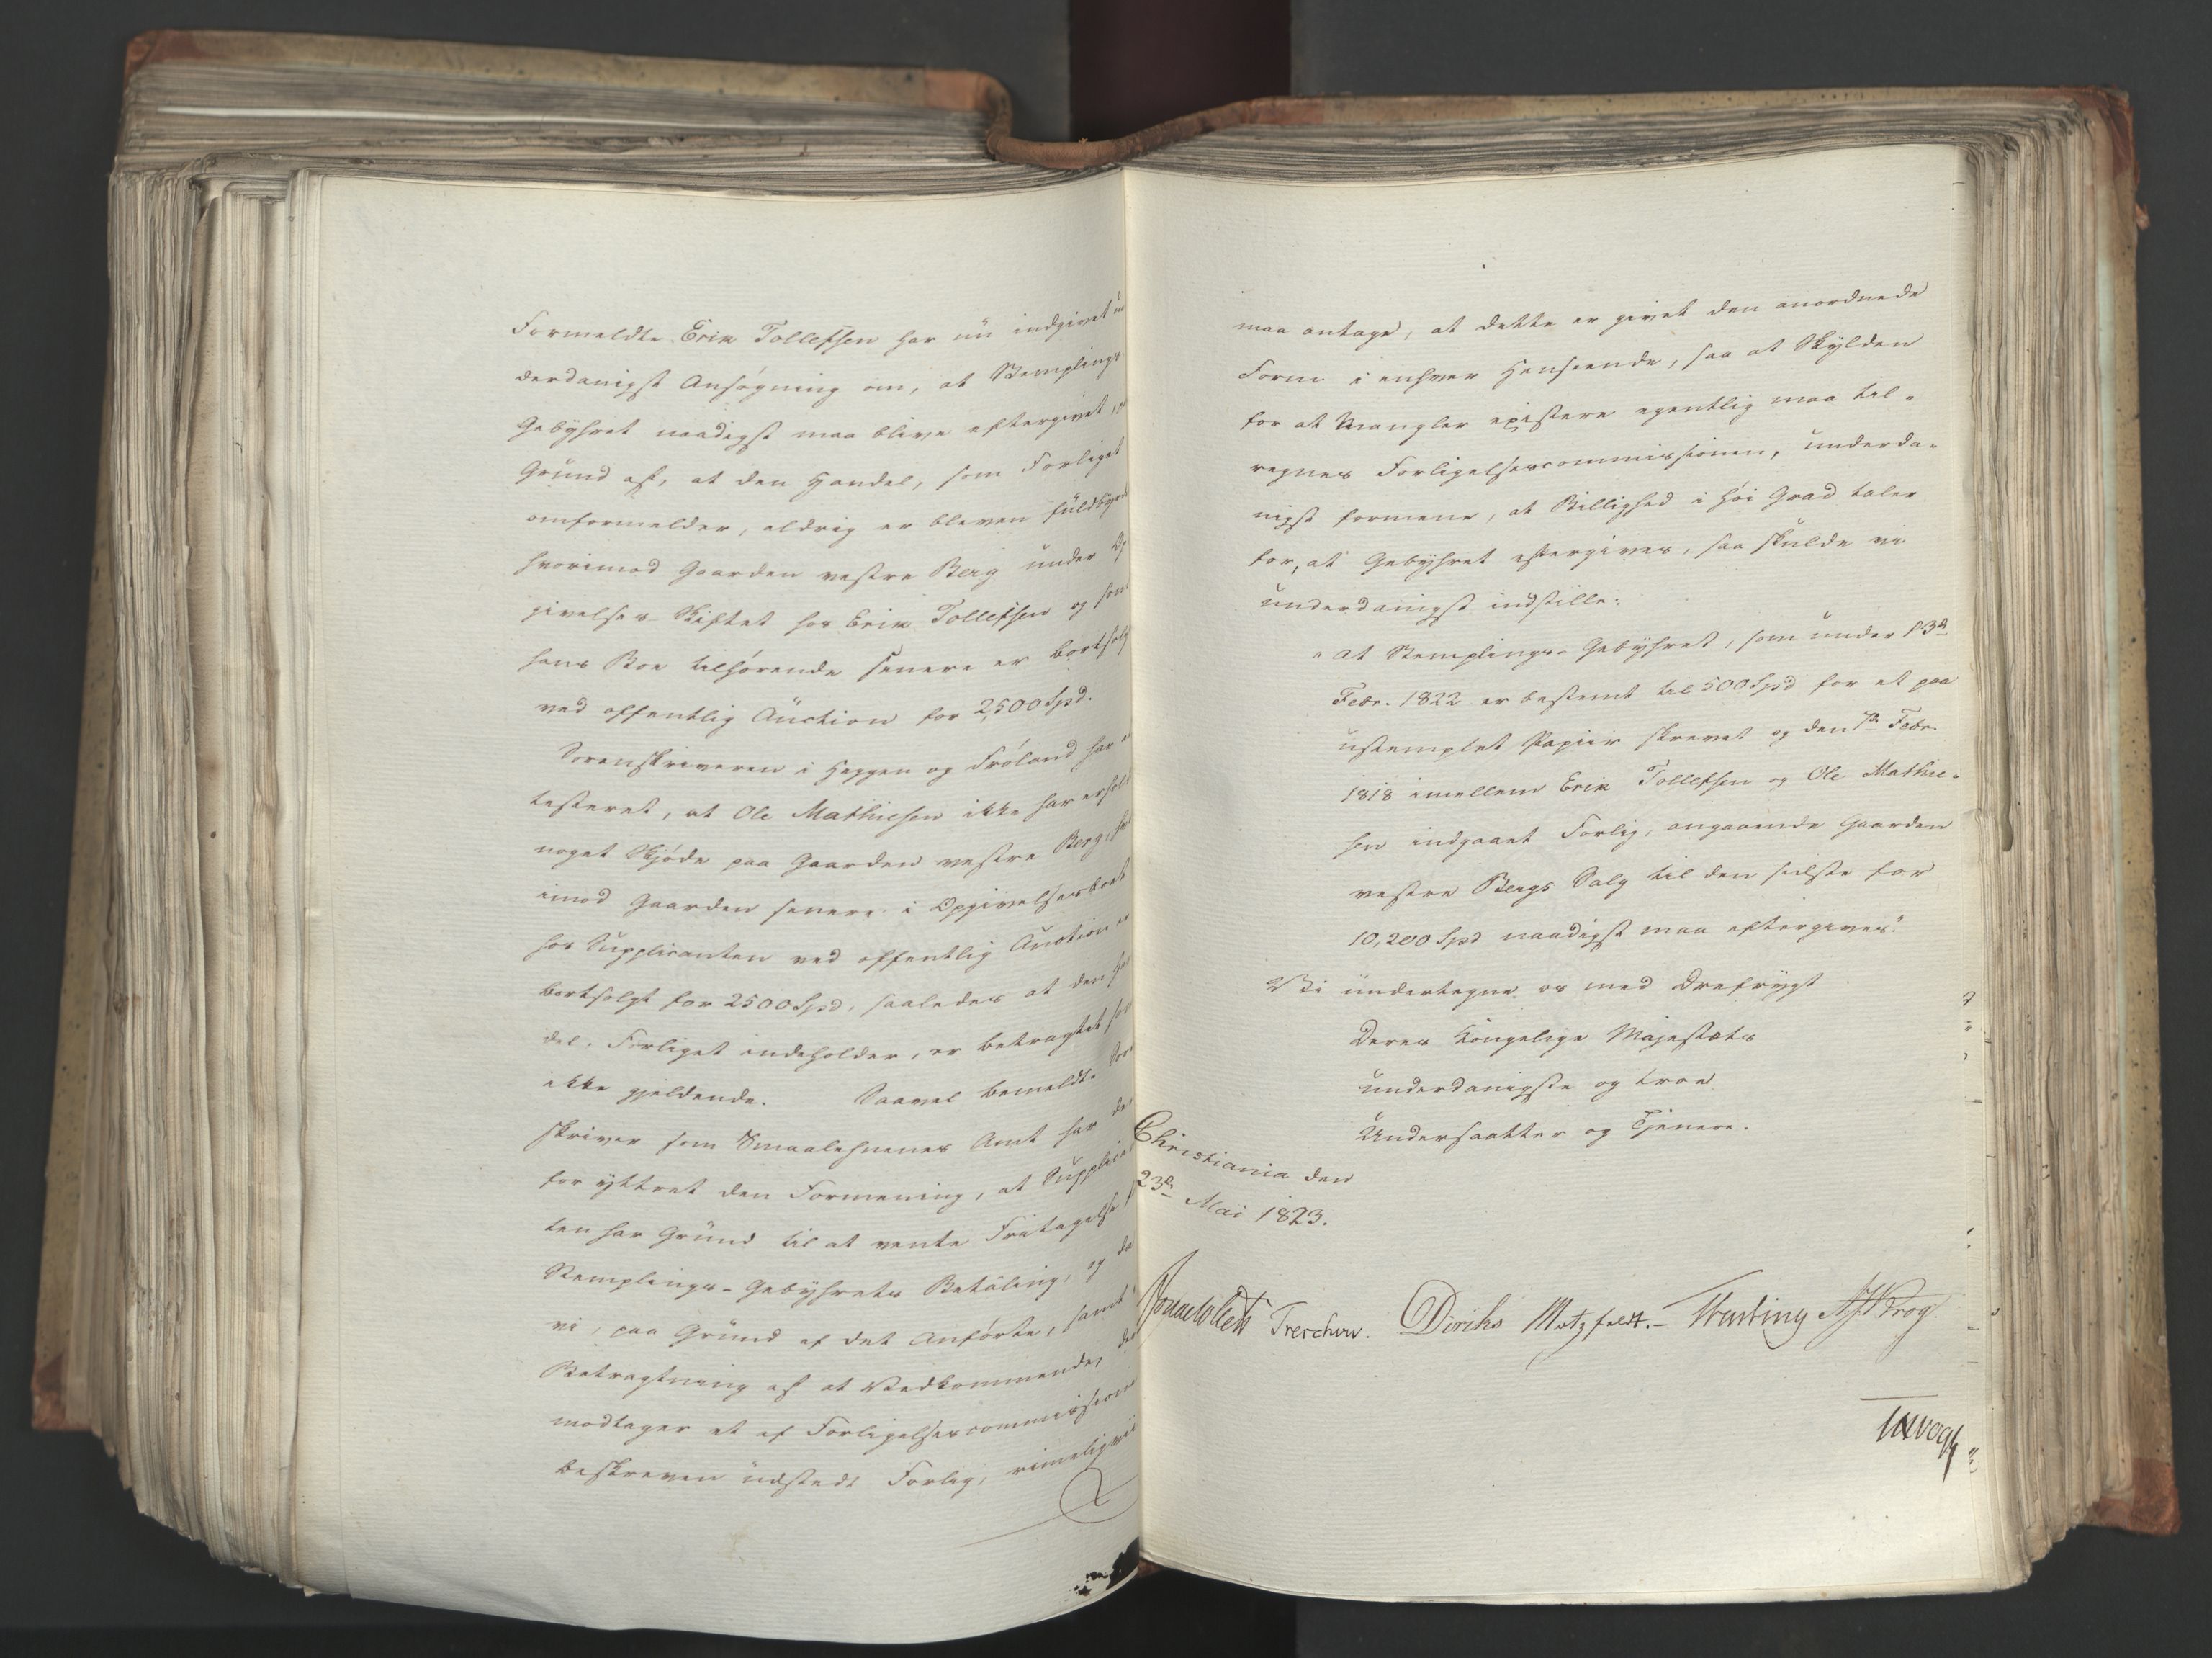 Formeldte Erik Tollefsen har nu indgivet un
derdanigst Ansøgning om, at Stemplings-
Gebyhret naadigst maa blive eftergivet,
Grund af, at den Handel, som Forliget
omformelder, aldrig er bleven fuldbyrd
hvorimod Gaarden vestre Berg under Op
givelses Skiftet hos Erik Tollefsen og som
hans Boe tilhørende senere er bortsolg
ved offentlig Auction for 2,500 Spd.
Sorenskriveren i Heggen og Frøland har
testeret, at Ole Mathiesen ikke har erhold
noget Skjøde paa Gaarden vestre Berg, hvor
imod Gaarden senere i Opgivelsesboet
hos Supplicanten ved offentlig Auction er
bortsolgt for 2500 Spd, saaledes at den Han
del, Forliget indeholder, er betragtet som
ikke gjeldende. Saavel bemeldte Soren
skriver som Smaalehnenes Amt har der
for yttret den Formening, at Supplican
ten har Grund til at vente Fritagelse f
Stemplings-Gebyhrets Betaling, og da
vi, paa Grund af det Anførte, samt i
Betragtning af at Vedkommende, der
modtager et af Forligelsescommissionen
beskreven udstedt Forlig, rimeligviis
maa antage, at dette er givet den anordnede
Form i enhver Henseende, saa at Skylden
for at Mangler existere egentlig maa til-
regnes Forligelsescommissionen, underda-
nigst formene, at Billighed i høi Grad taler
for, at Gebyhret eftergives, saa skulde vi
underdanigst indstille:
"at Stemplings-Gebyhret, som under 13de
Febr. 1822 er bestemt til 500 Spd for et paa
ustemplet Papiir skrevet og den 7de Febr.
1818 imellem Erik Tollefsen og Ole Mathie-
sen indgaaet Forlig, angaaende Gaarden
vestre Bergs Salg til den sidste for
10,200 Spd naadigst maa eftergives."
Vi undertegne os med Ærefrygt
Deres Kongelige Majestæts
underdanigste og troe
Undersaatter og Tjenere.
Christiania den
23de Mai 1823.
Treschow. Diriks Motzfeldt.- Krog